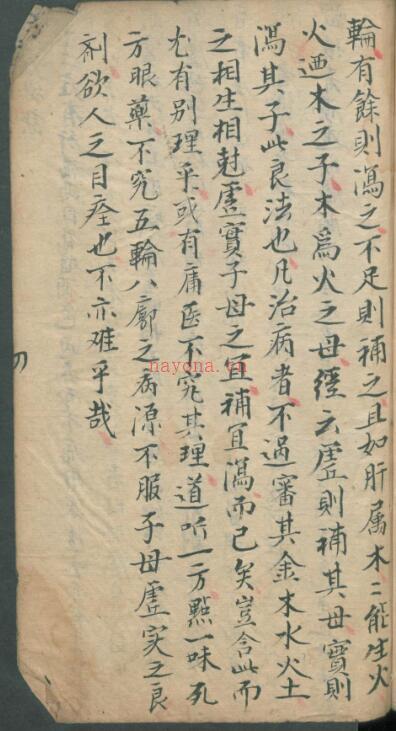 輪有餘則瀉之不足則補之且如肝属木〻能生火
火廼木之子木爲火之母經云虗則補其母實則
瀉其子此良法也凡治病者不過審其金木水火土
之相生相尅虗實子母之宜補宜瀉而已矣豈舎此而
尤有别理乎或有庸医不究其理道听一方點一味死
方眼藥不究五輪八廓之病源不服子母虗实之良
剤欲人之目痊也不亦难乎哉
nayona.vn